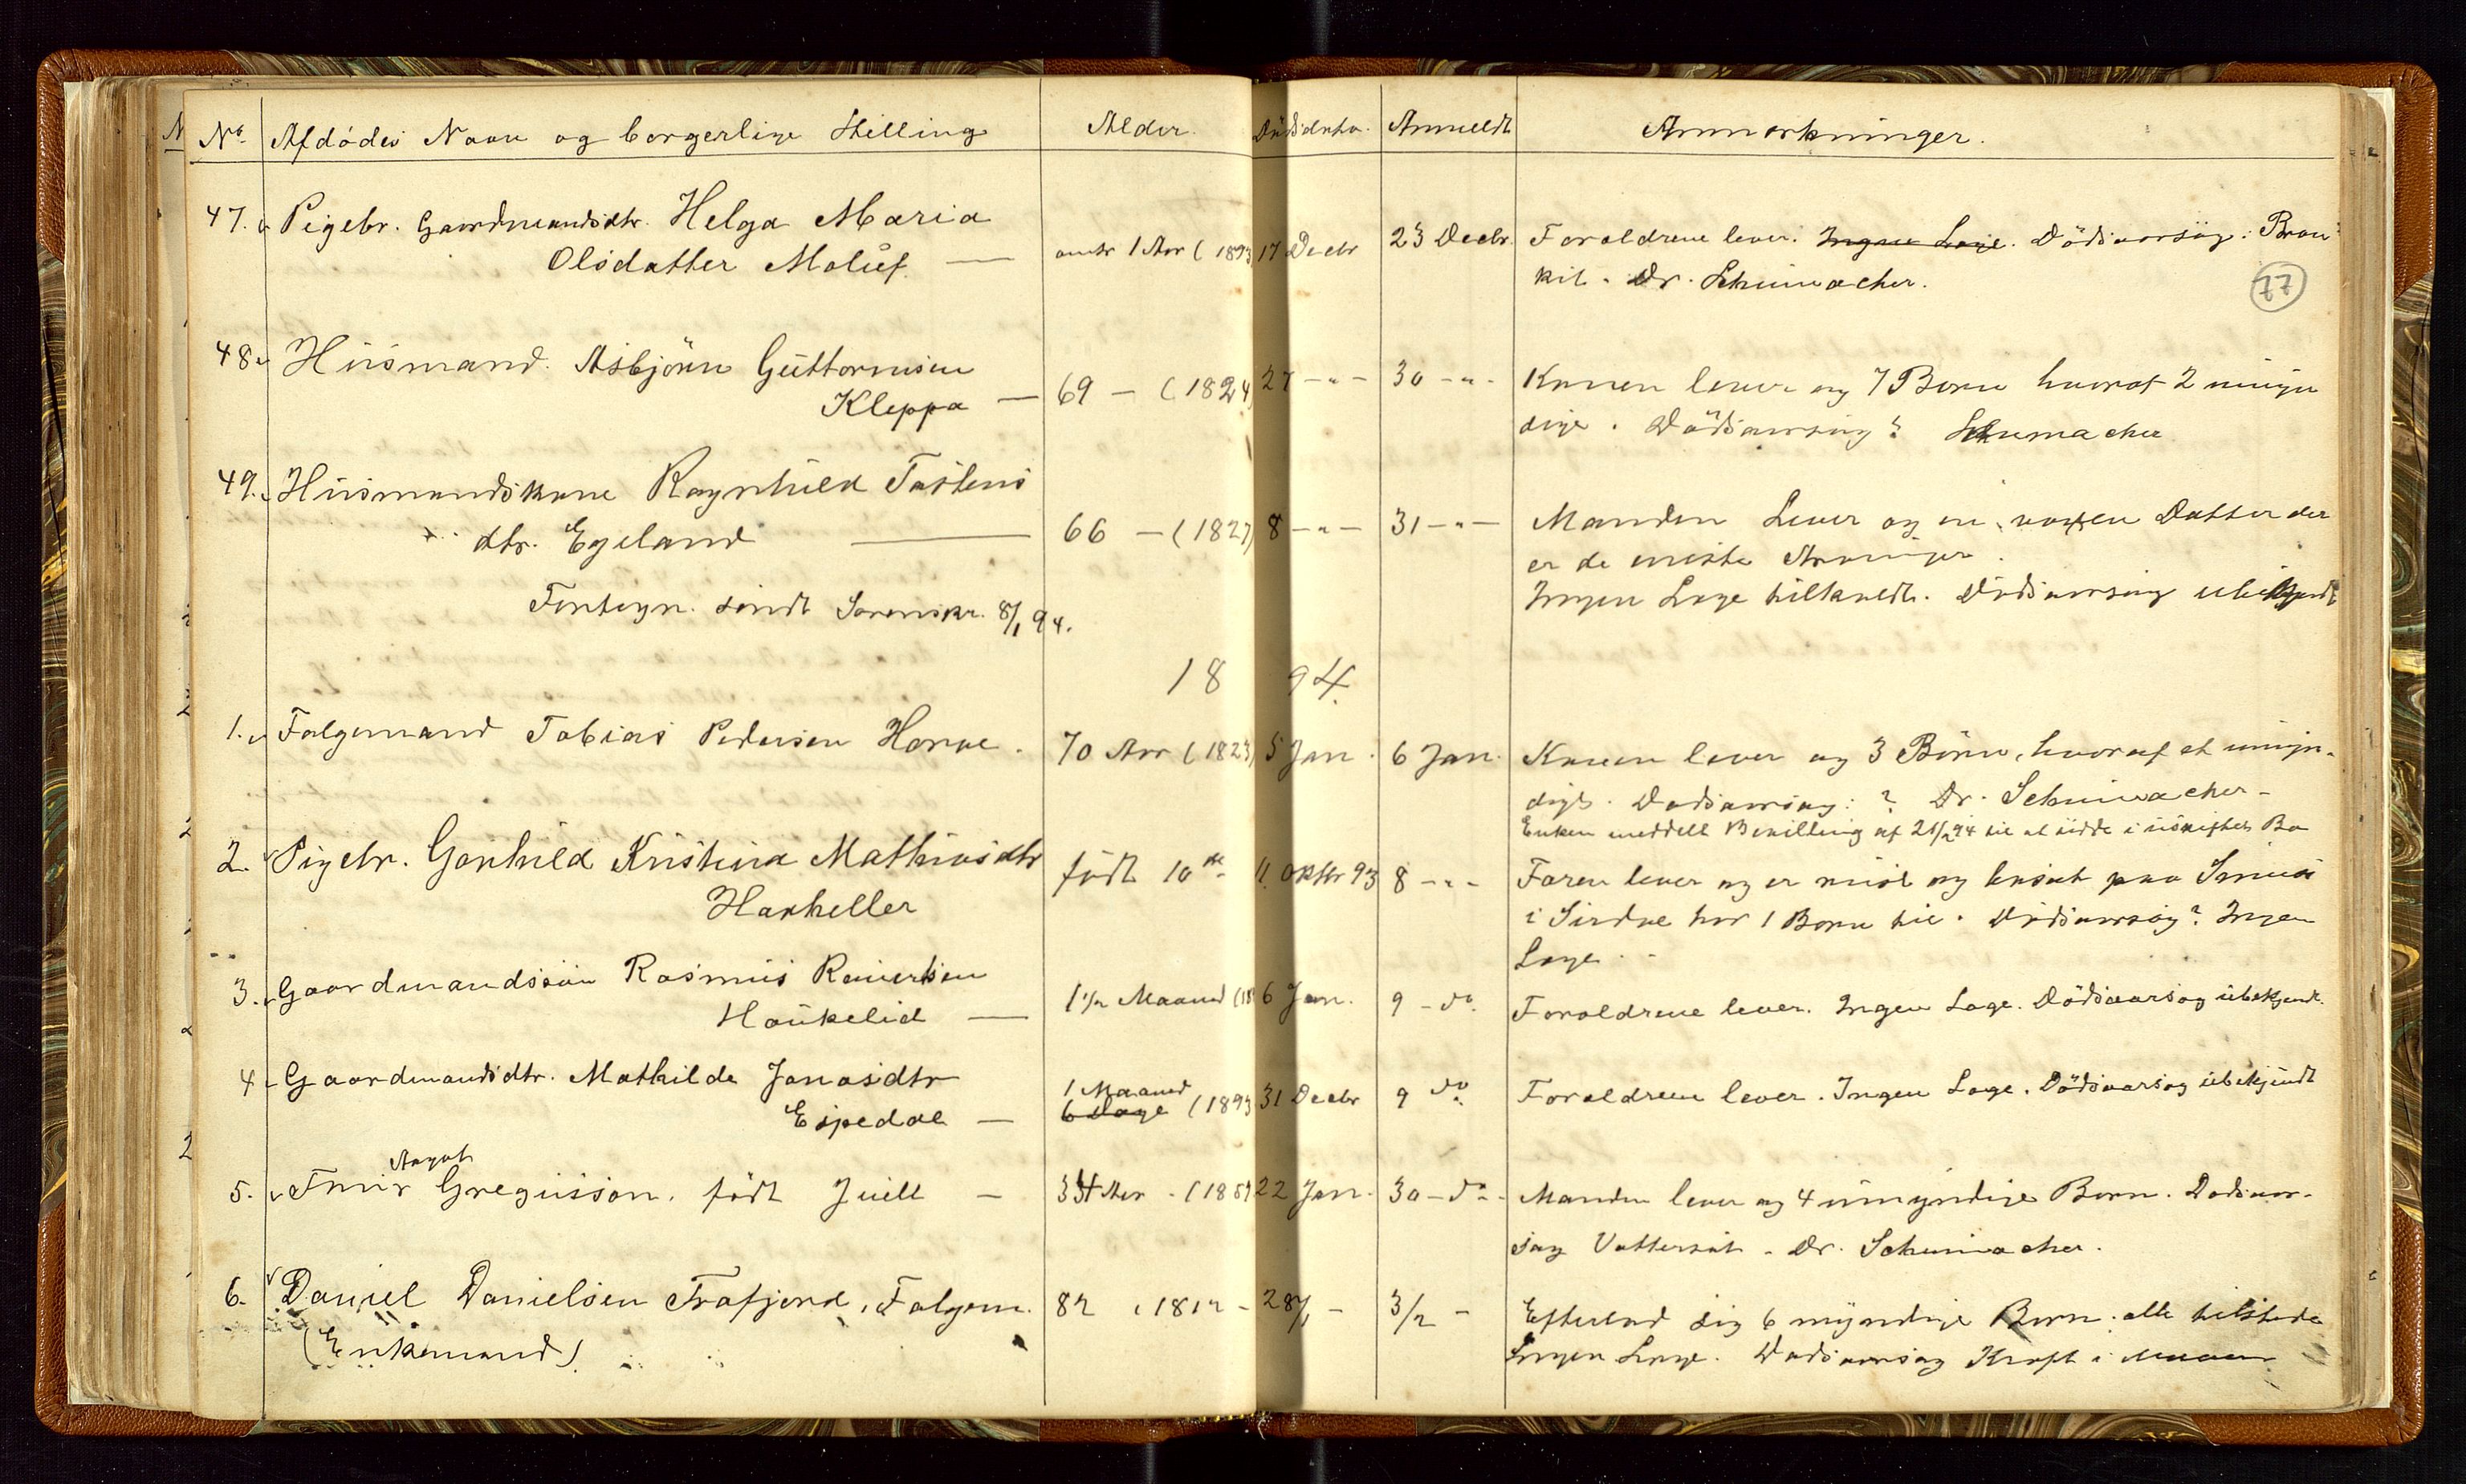 No. Afdødes Navn og borgerlige Stilling Alder. Dødsdato. Anmeldt Anmærkninger.
47. Pigebr. Gaardmandsdtr. Helga Maria
Olsdatter Maluf — omtr 1 Aar (1893 17 Decbr 23 Decbr. Forældrene lever. Ingen Læge. Dödsaarsag: Bron
kit. Dr. Schumacher.
77
48. Husmand. Asbjörn Guttormsen
Kleppa — 69 — (1824) 27 -"- 30 -"- Konen lever og 7 Børn hvoraf 2 umyn
dige. Dödsaarsag? Schumacher
49. Husmandskone Ragnhild Tostens
dtr. Egeland — 66 — (1827) 8 -"- 31 -"- Manden Lever og en voxen Datter der
er de eneste Arvinger.
Ingen Læge tilkaldt. Dödsaarsag ubekjendt
Fortegn. sendt Sorenskr. 8/1 94.
1894.
1. Folgemand Tobias Pedersen Horve. 70 Aar (1823) 5 Jan. 6 Jan. Konen lever og 3 Börn, hvoraf et umyn-
digt. Dødsaarsag: ? Dr. Schumacher-
Enken meddelt Bevilling af 21/2 94 til at sidde i uskiftet Bo
2. Pigebr. Gonhild Kristina Mathiasdtr
Hankeller født 10de 11 Oktbr 93 8 -"- Faren lever og er reist og bosat paa
i Sirdal har 1 Børn til. Dödsaarsag? Ingen
Læge.
3. Gaardmandssön Rasmus Reiertsen
Haukelid — 1 1/2 Maaned (18 6 Jan. 9 - do. Forældrene lever. Ingen Læge. Dödsaarsag ubekjendt.
4. Gaardmandsdtr. Mathilde Jonasdtr
Espedal — 1 Maaned
6 Dage (1893 31 Decbr 9 do. Forældrene lever. Ingen Læge. Dödsaarsag ubekjendt
5. Fruer Gregusson, född Juell — 34 Aar - (1859 22 Jan. 30 - do - Manden lever og 4 umyndige Børn. Dødsaar-
sag Vattersot. Dr. Schumacher.
6. Daniel Danielsen Frafjord, Folgem.
(Enkemand) 82 , 1812 - 28/1 - 3/2 - Efterlod sig 6 myndige Børn. alle tilstede
Ingen Læge. Dødsaarsag Kræft i Maven